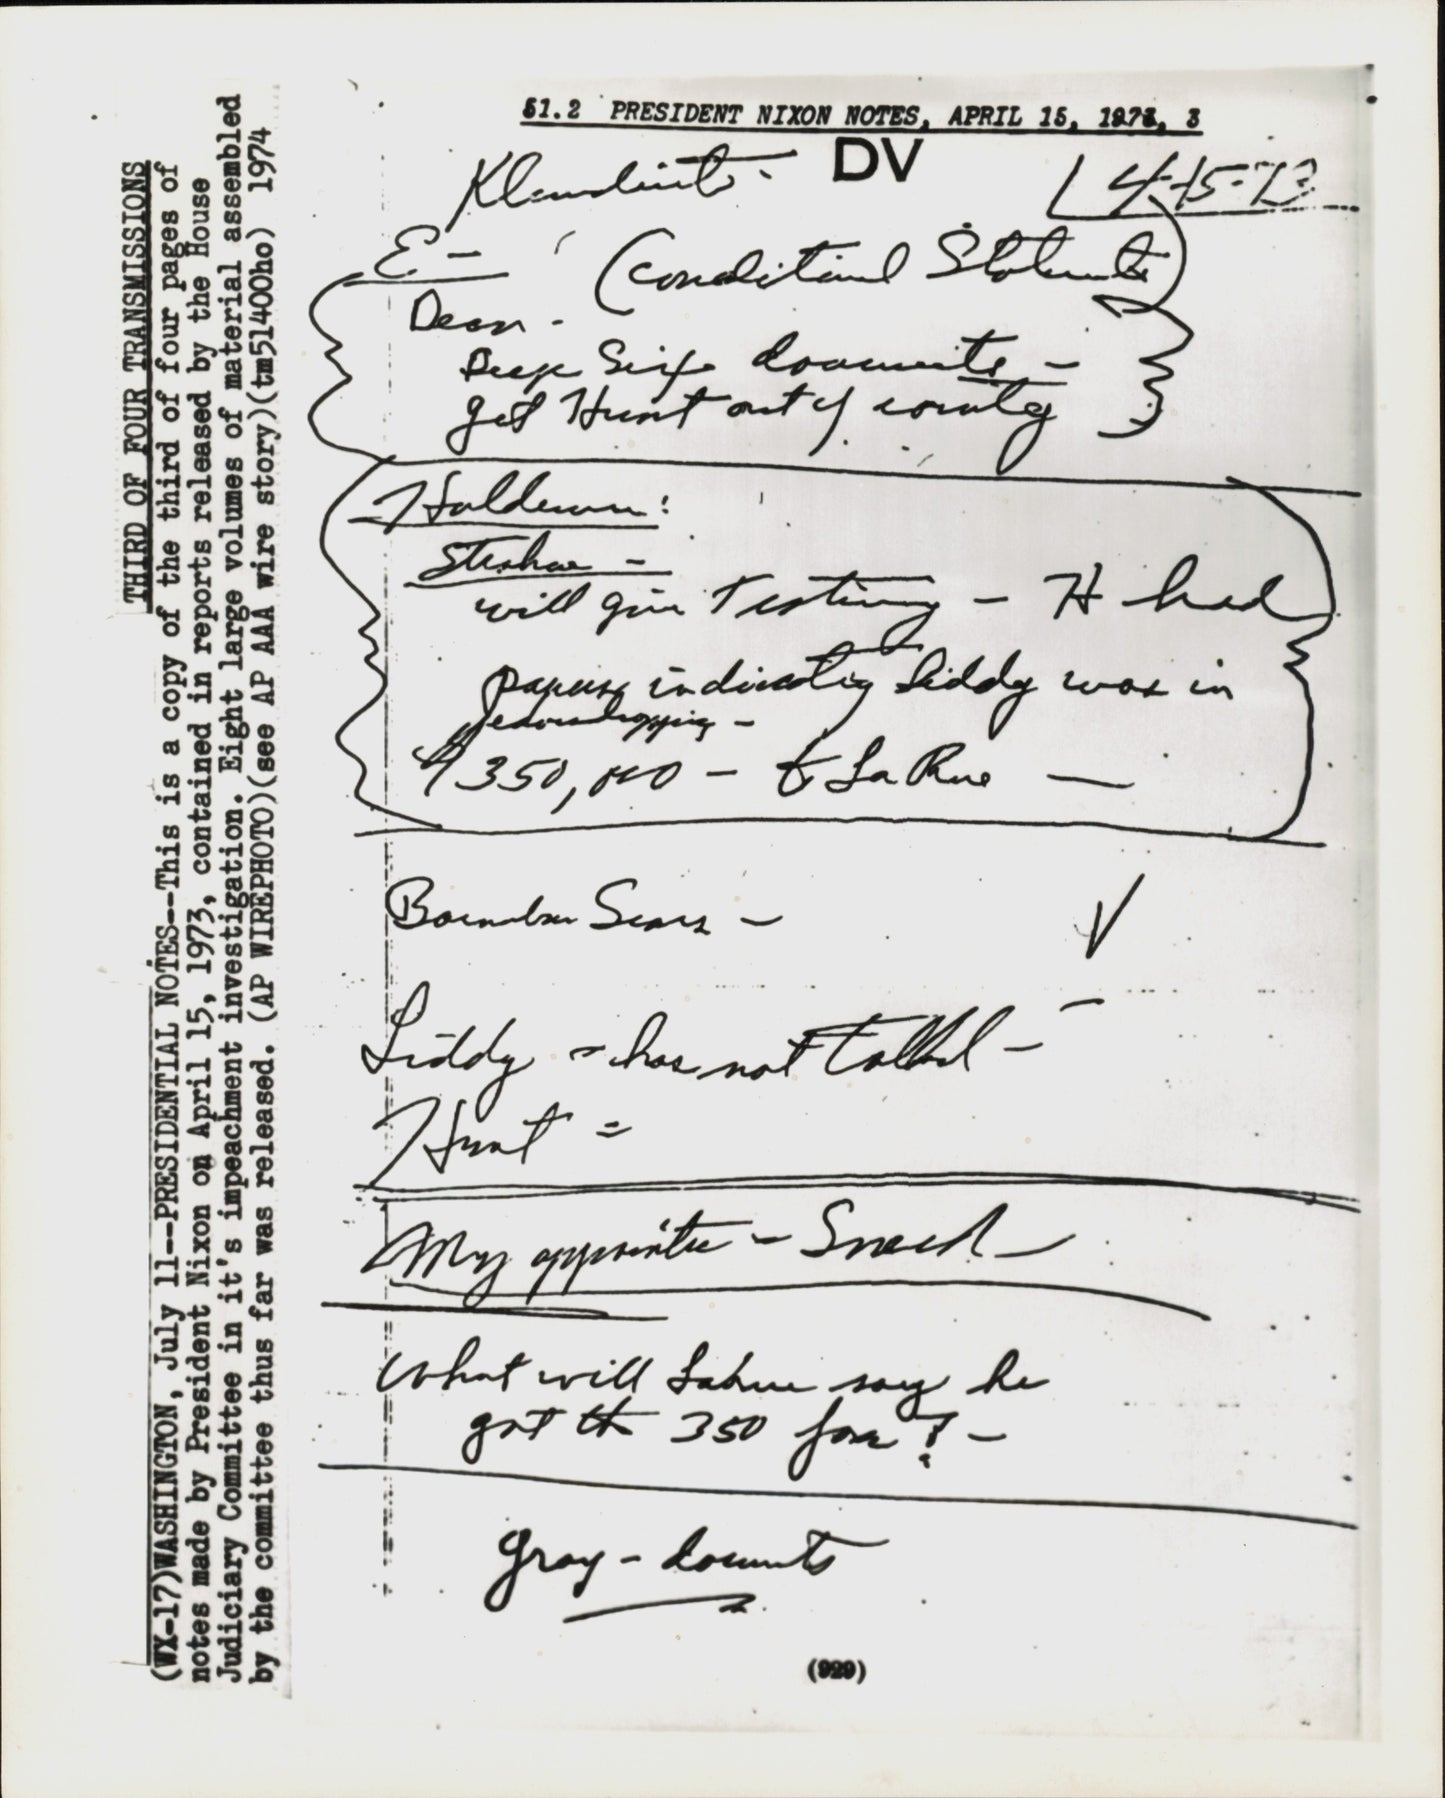 THIRD OF FOUR TRANSMISSIONS
(WX-17)WASHINGTON, July 11--PRESIDENTIAL NOTES--This is a copy of the third of four pages of
notes made by President Nixon on April 15, 1973, contained in reports released by the House
Judiciary Committee in it's impeachment investigation. Eight large volumes of material assembled
by the committee thus far was released. (AP WIREPHOTO)(see AP AAA wire story)(tm51400ho) 1974
51.2 PRESIDENT NIXON NOTES, APRIL 15, 1973, 3
DV
Kleindienst -
4-15-73
E - (conditional Statements)
Dean -
Deep Six documents -
get Hunt out of country
Haldeman:
Strahan -
will give Testimony - H had
papers indicating Liddy was in
eavesdropping -
$350,000 - to La Rue -
Liddy - has not talked -
Hunt =
My appointee - Sneed -
What will Larue say he
got the 350 for? -
Gray - documents
(929)